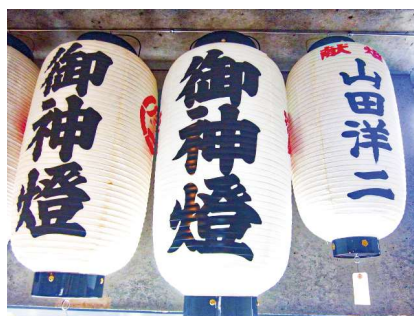 御神燈
御神燈
献燈
山田洋二